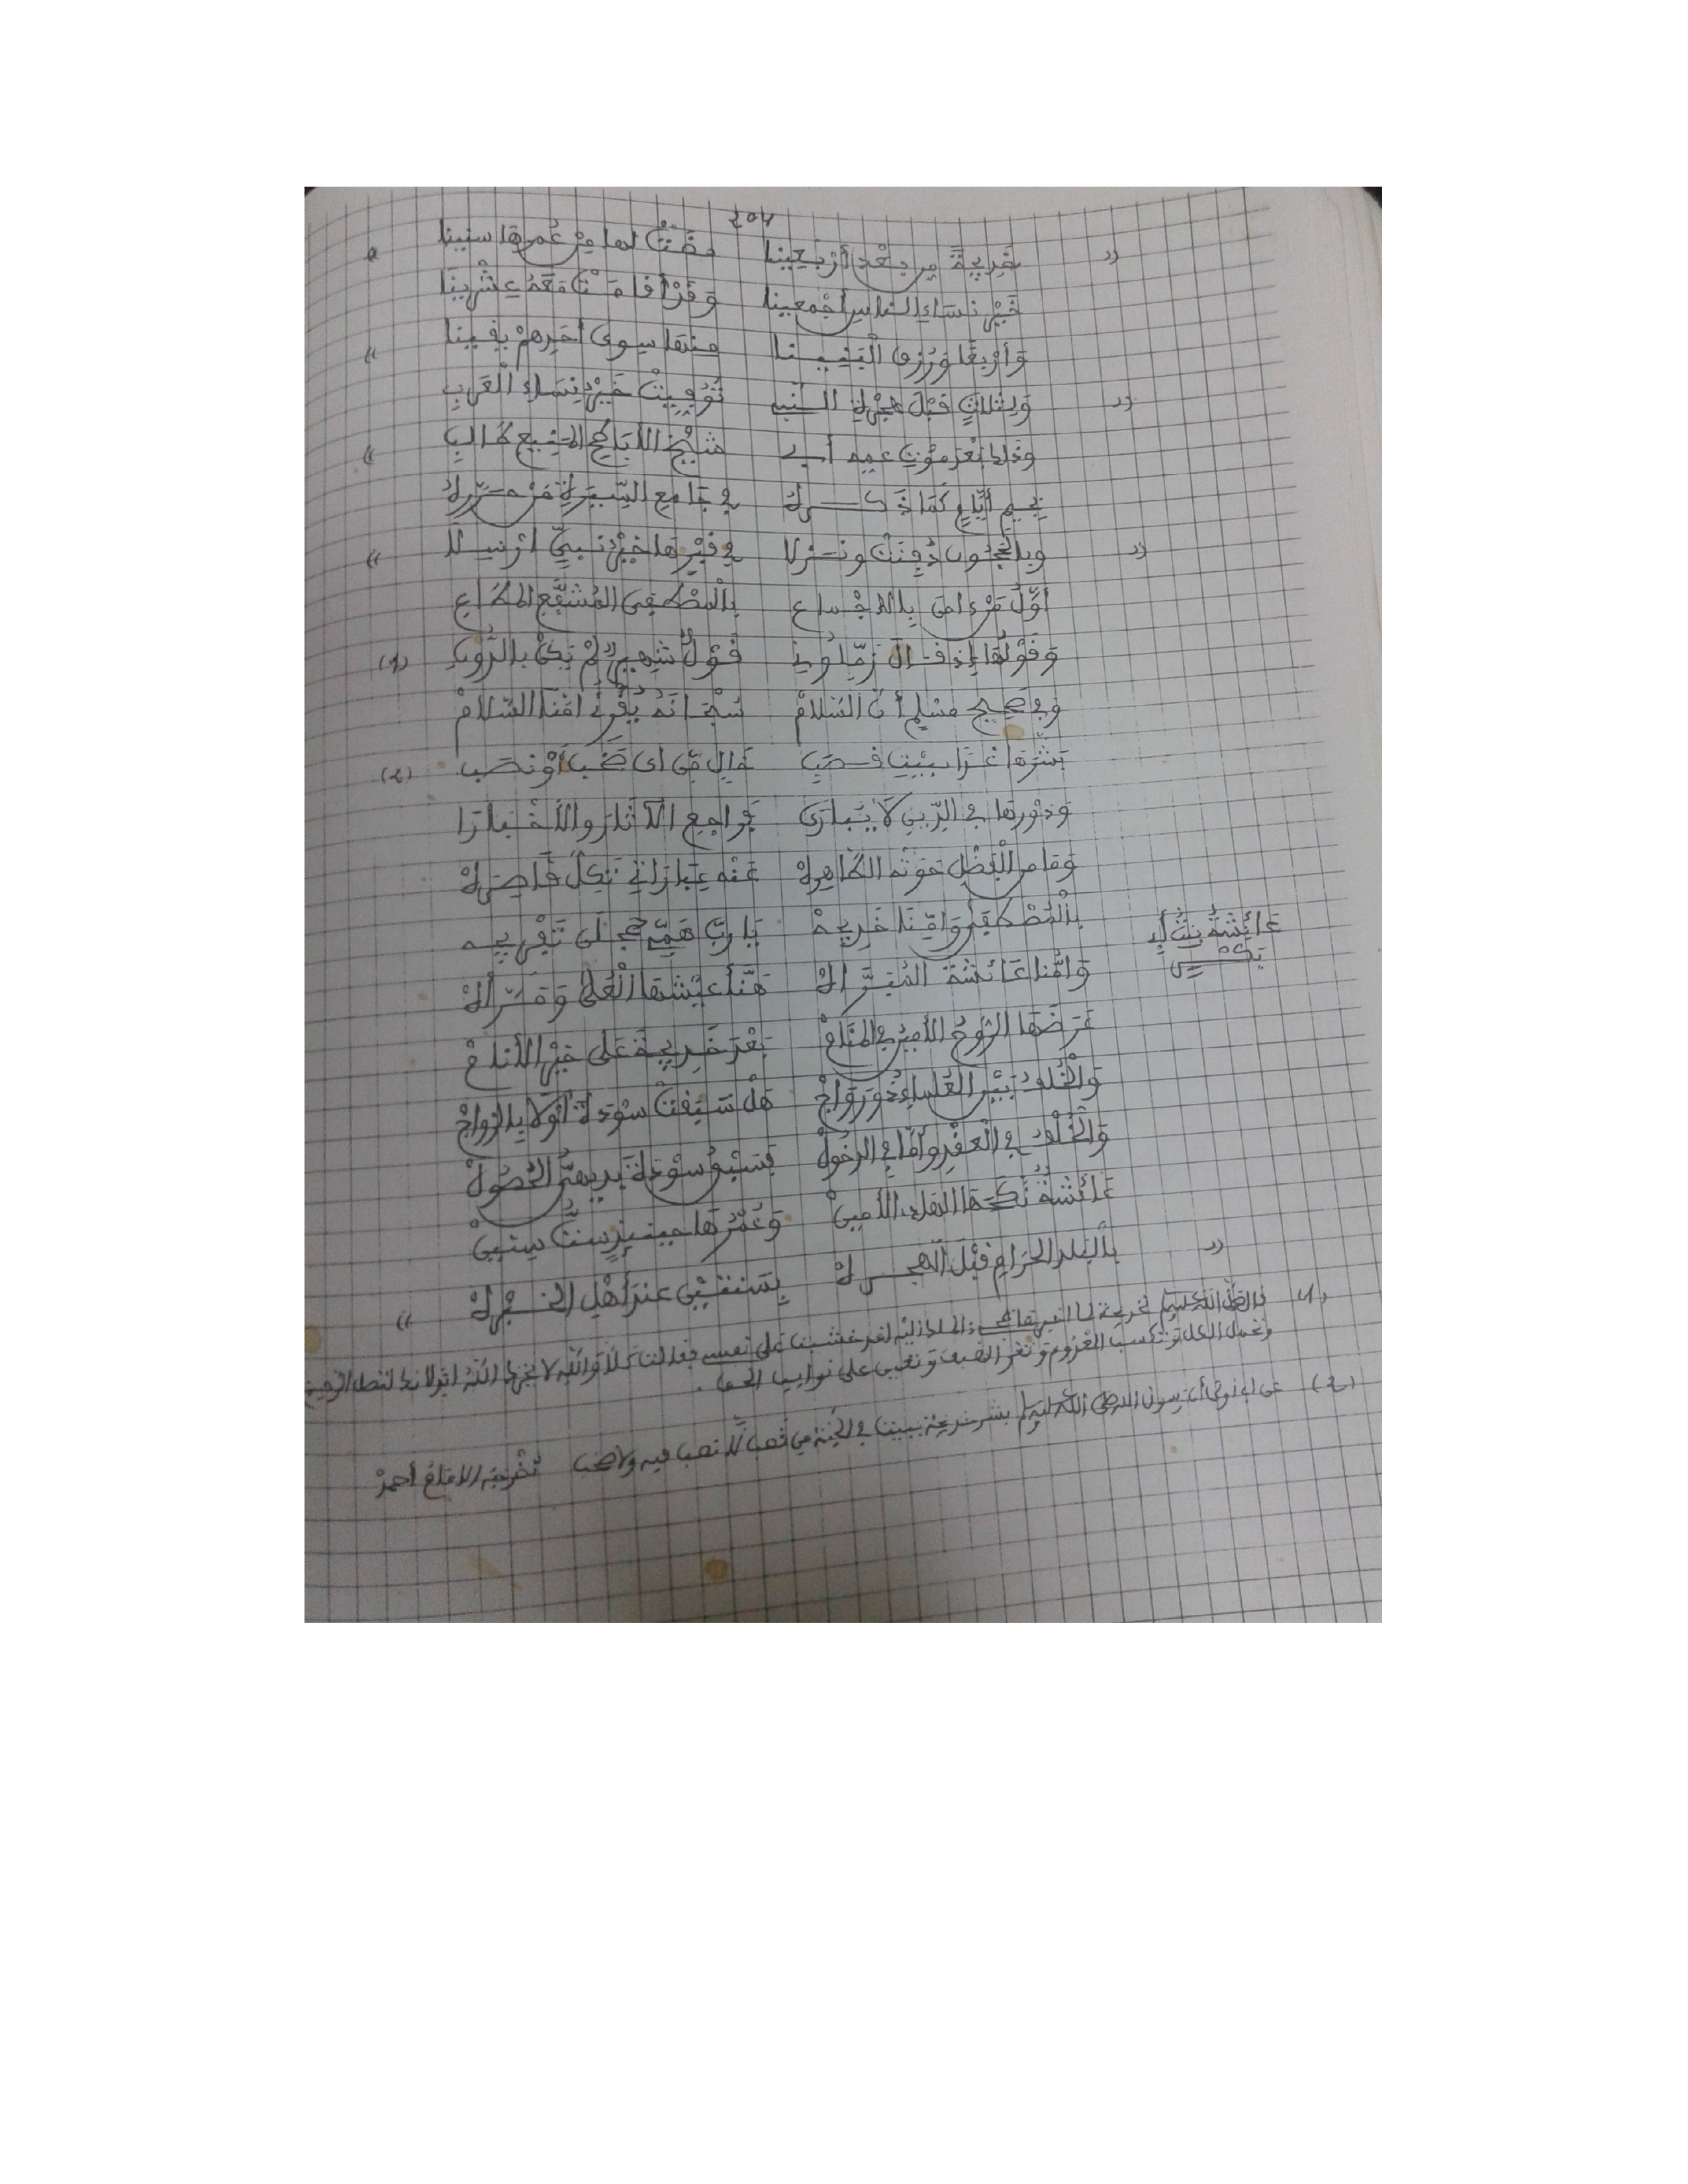 خَدِيجَةَ مِن بَعْدِ أَرْبَعِينَا مَضَتْ لها مِنْ عُمرِهَا سنينا
خَيْرِ نِسَاءِ الناسِ أجْمعينا وَقَدْ أقامَتْ مَعَهُ عِشْرِينَا
وَأرْبعًا وَرُزِقَ الْبَنِينا منها سِوى أخِيرِهمْ يقِينا
وَبِثلاثٍ قَبْلَ هِجْرةِ النبي تُوُفِّيتْ خَيْرُ نِسَاءِ الْعَرَبِ
وذاك بَعْدَ مَوْتِ عمِّه أبي شَيْخِ الأبَاطِحِ المنيعِ طالبِ
في جامع السِّيرَةِ مَنْ
وبالْحَجُونِ دُفِنَتْ ونزلا في قبْرِها خَيْرُ نبيٍّ أرسلا
أوَّلُ مَنْ ءامن بالاجْماعِ بالْمصْطَفى المُشَفَّعِ المُطَاعِ
وَقوْلُهَا إذ قال زَمِّلُونِي قَوْلٌ شَهِيرٌ لمْ يَكنْ بالدُّونِ (1)
وَفِي صَحِيحِ مسْلِمٍ أنَّ السّلامْ سُبْحَانَهُ يُقْرِئُ أمَّنَا السّلامْ
بَشَّرَهَا غَدًا ببيْتٍ قصَبِ خالٍ مِن أي صَخَبٍ أوْ نصَبِ (2)
وَدَوْرها في الدِّينِ لَا يُبَارَى فراجعِ الآثَارَ والأخْبارَا
وَمَا من الْفَضْلِ حَوَتْه الطّاهِرة عَنْه عِبَارَاتي تَكِلُّ قَاصِرَة
بِالْمُصْطَفَى وَأمِّنَا خَدِيجَهْ يَا رَبِّ هَمِّي عجِّلَنْ تَفْرِيجَه
عَائِشَةُ بِنْتُ أبِي
بكر
وَأمُّنا عَائشَةُ المُبَرَّأة هَنَّأ عيْشَها الْعُلَى وَمَرَّأة
عَرَضَهَا الرّوحُ الأمينُ في المَنَامْ بَعْدَ خَدِيجَةَ عَلى خَيْرِ الأنامْ
وَالْخُلْفُ بَيْنَ العُلماءِ ذُو رَوَاجْ هَلْ سَبَقتْ سَوْدَةُ أوْ لا بِالزواجْ
وَالْخُلْفُ في الْعقْدِ وأمَّا في الدخُولْ فسَبْقُ سَوْدَةَ بَدِيهيُّ الحُصُولْ
عَائشةٌ نَكَحَهَا الهادِ الأمينْ وَعُمْرُهَا حينئذٍ ستُّ سِنِينْ
بالْبَلدِ الحَرَامِ قبْلَ الهجرة بِسَنَتَيْنِ عندَ أهْلِ الخبْرة
(1) قال صلى الله عليه وسلم لخديجة لما لقد خشيت على نفسي فقالت كَلَّا وَاللَّهِ لا يخزيك اللَّهُ أبدا إنك لتصل الرحم
وتحمل الكل وتكسب المَعْدوم وتقري الضيف وتعين على نوايب الحق.
(2) عن ابن أبي أوفى أن رسول الله صلى الله عليه وسلم بشر خديجة ببيت في الجَنة من قصب لا نصب فيه ولا صخب أخرجه الإمام أحمدْ